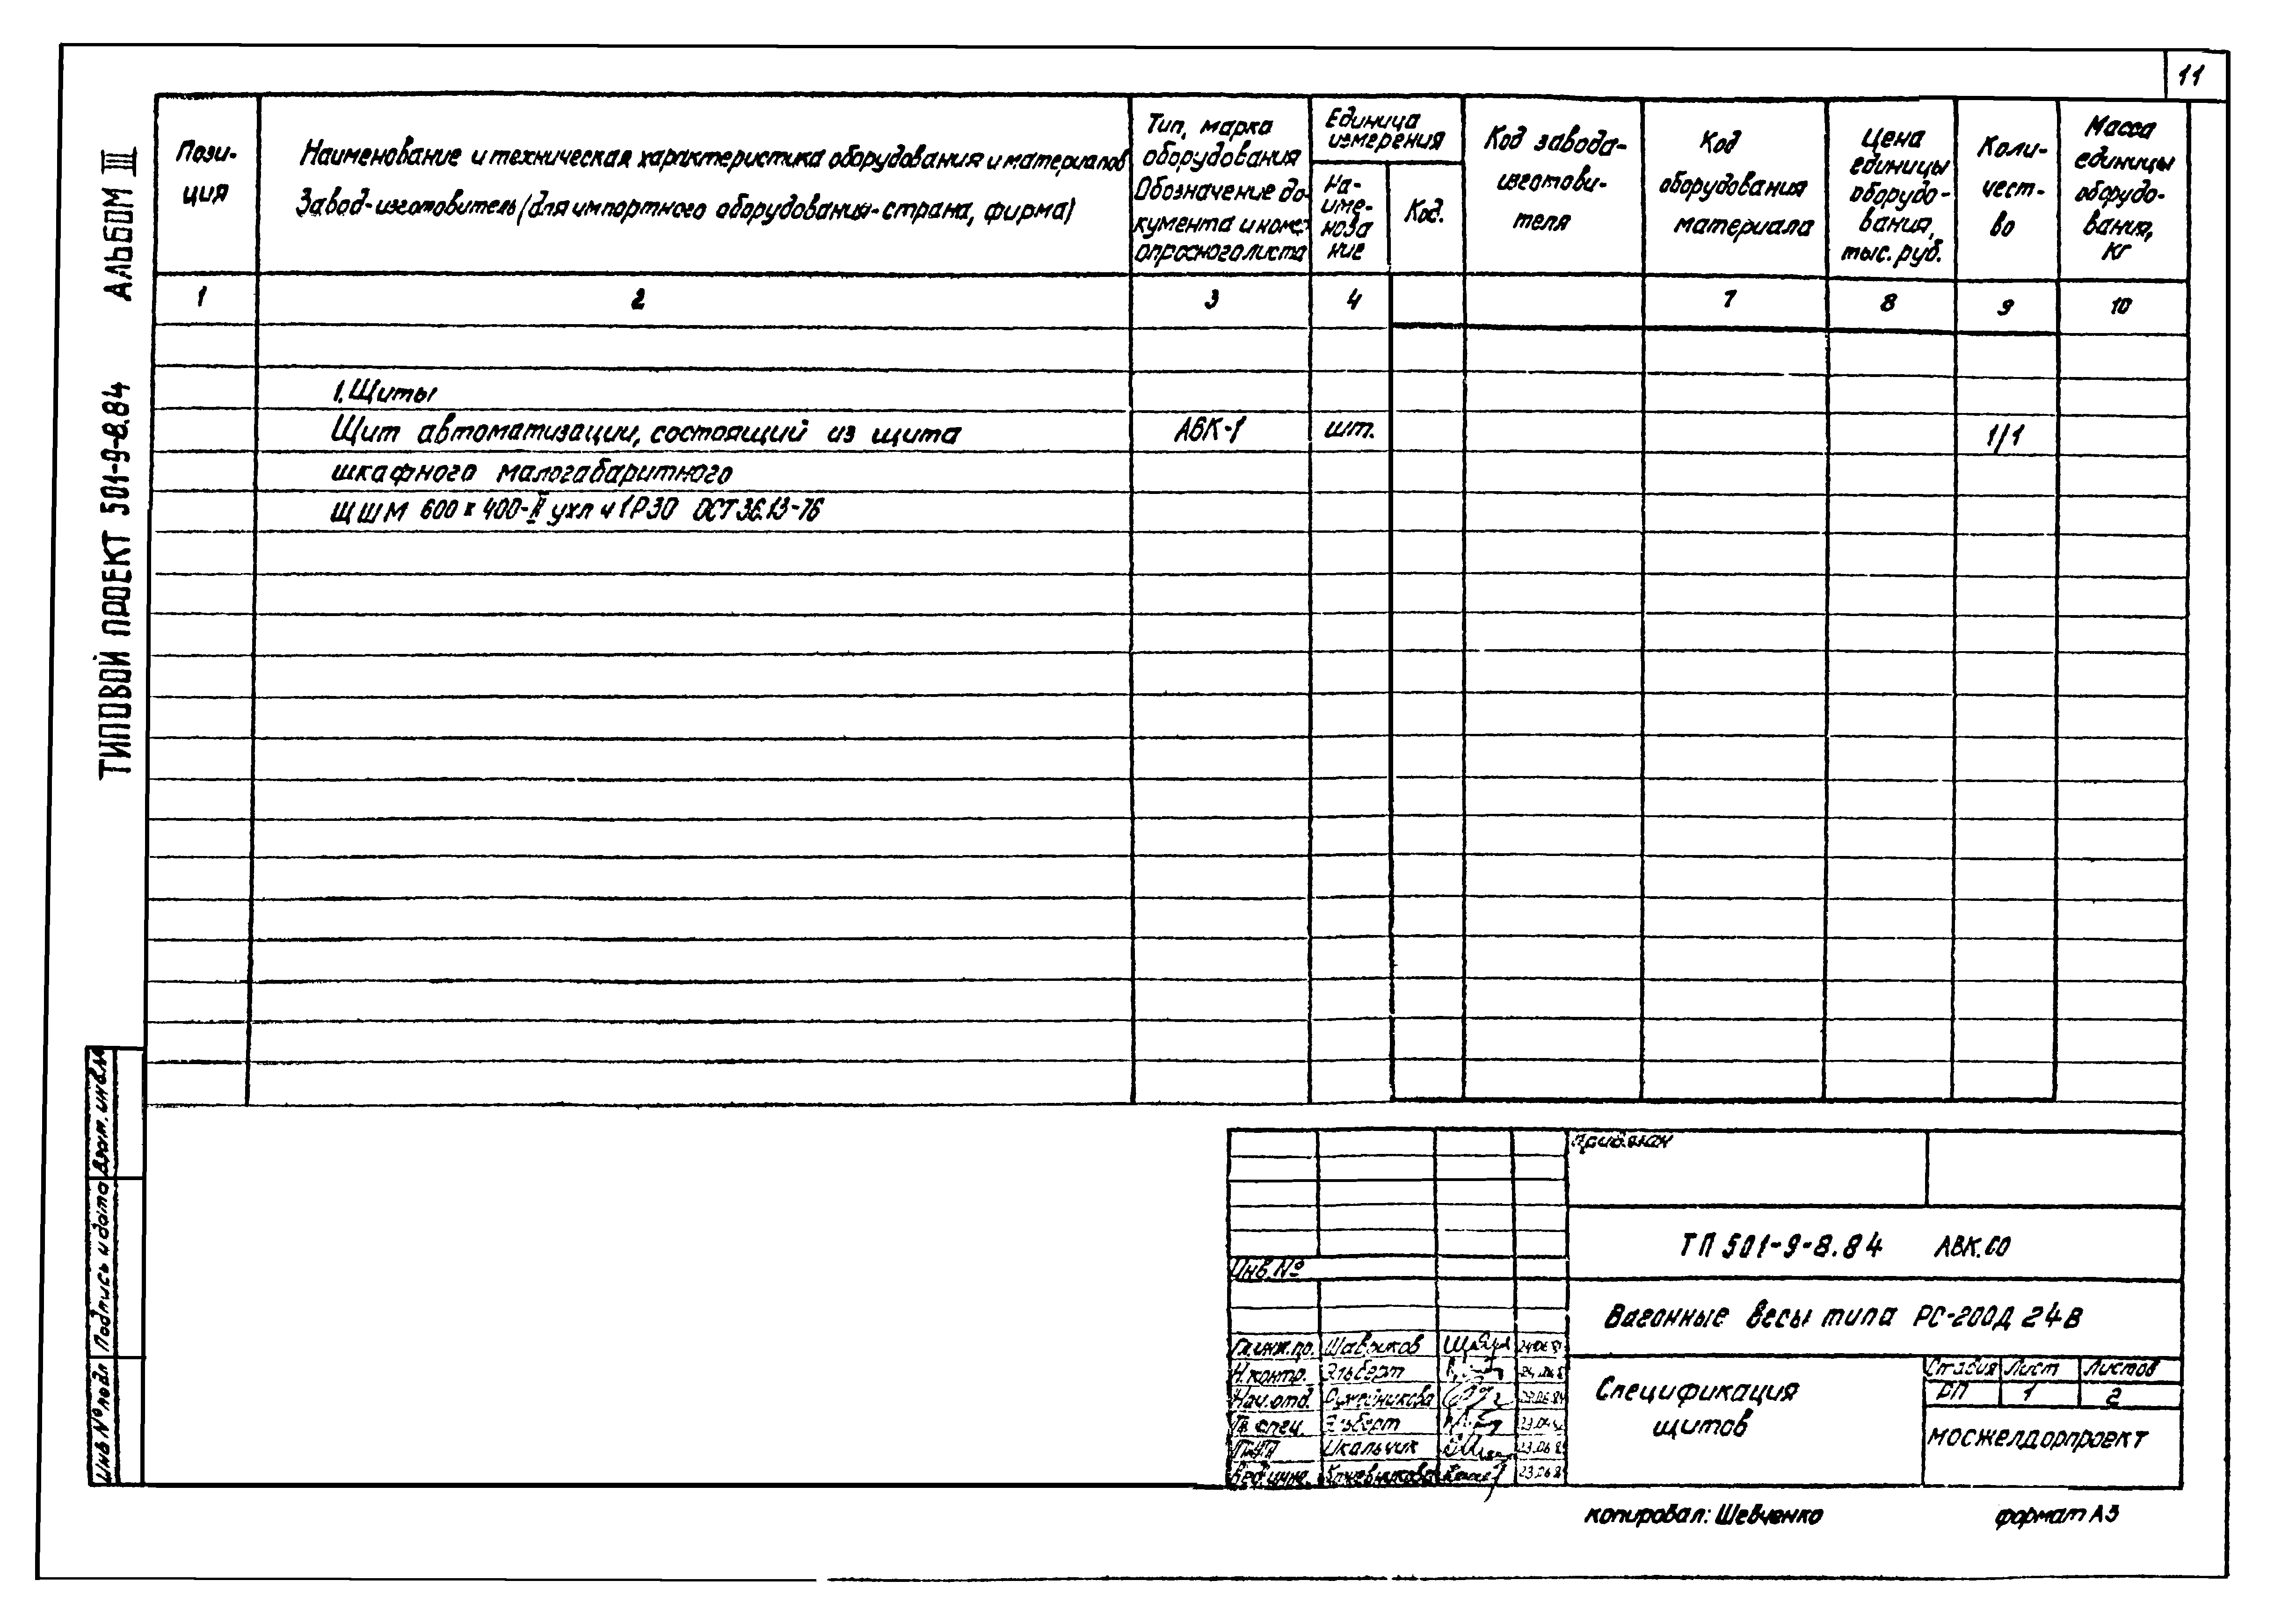 11
АЛЬБОМ III
ТИПОВОЙ ПРОЕКТ 501-9-8.84
Пози-
ция
Наименование и техническая характеристика оборудования и материалов
Завод-изготовитель (для импортного оборудования-страна, фирма)
Тип, марка
оборудования
Обозначение до-
кумента и номер
опросного листа
Единица
измерения
На-
име-
нова
ние
Код.
Код завода-
изготови-
теля
Код
оборудования
материала
Цена
единицы
оборудо-
вания,
тыс. руб.
Коли-
чест-
во
Масса
единицы
оборудо-
вания,
кг
1 2 3 4 7 8 9 10
1. Щиты
Щит автоматизации, состоящий из щита АВК-1 шт. 1/1
шкафного малогабаритного
ЩШМ 600 х 400-II ухл 4 1Р30 ОСТ 36.13-76
Взам. инв. №
Подпись и дата
Инв № подл
привязан
Инв. №
ТП 501-9-8.84 АВК.СО
Вагонные весы типа РС-200Д 24В
Гл. инж. пр.
Н. контр. Эльберт
Нач. отд. 
Гл. спец. Эльберт
Вед. инж. Кожевникова
Спецификация
щитов
Стадия Лист Листов
РП 1 2
мосжелдорпроект
копировал: Шевченко формат А3